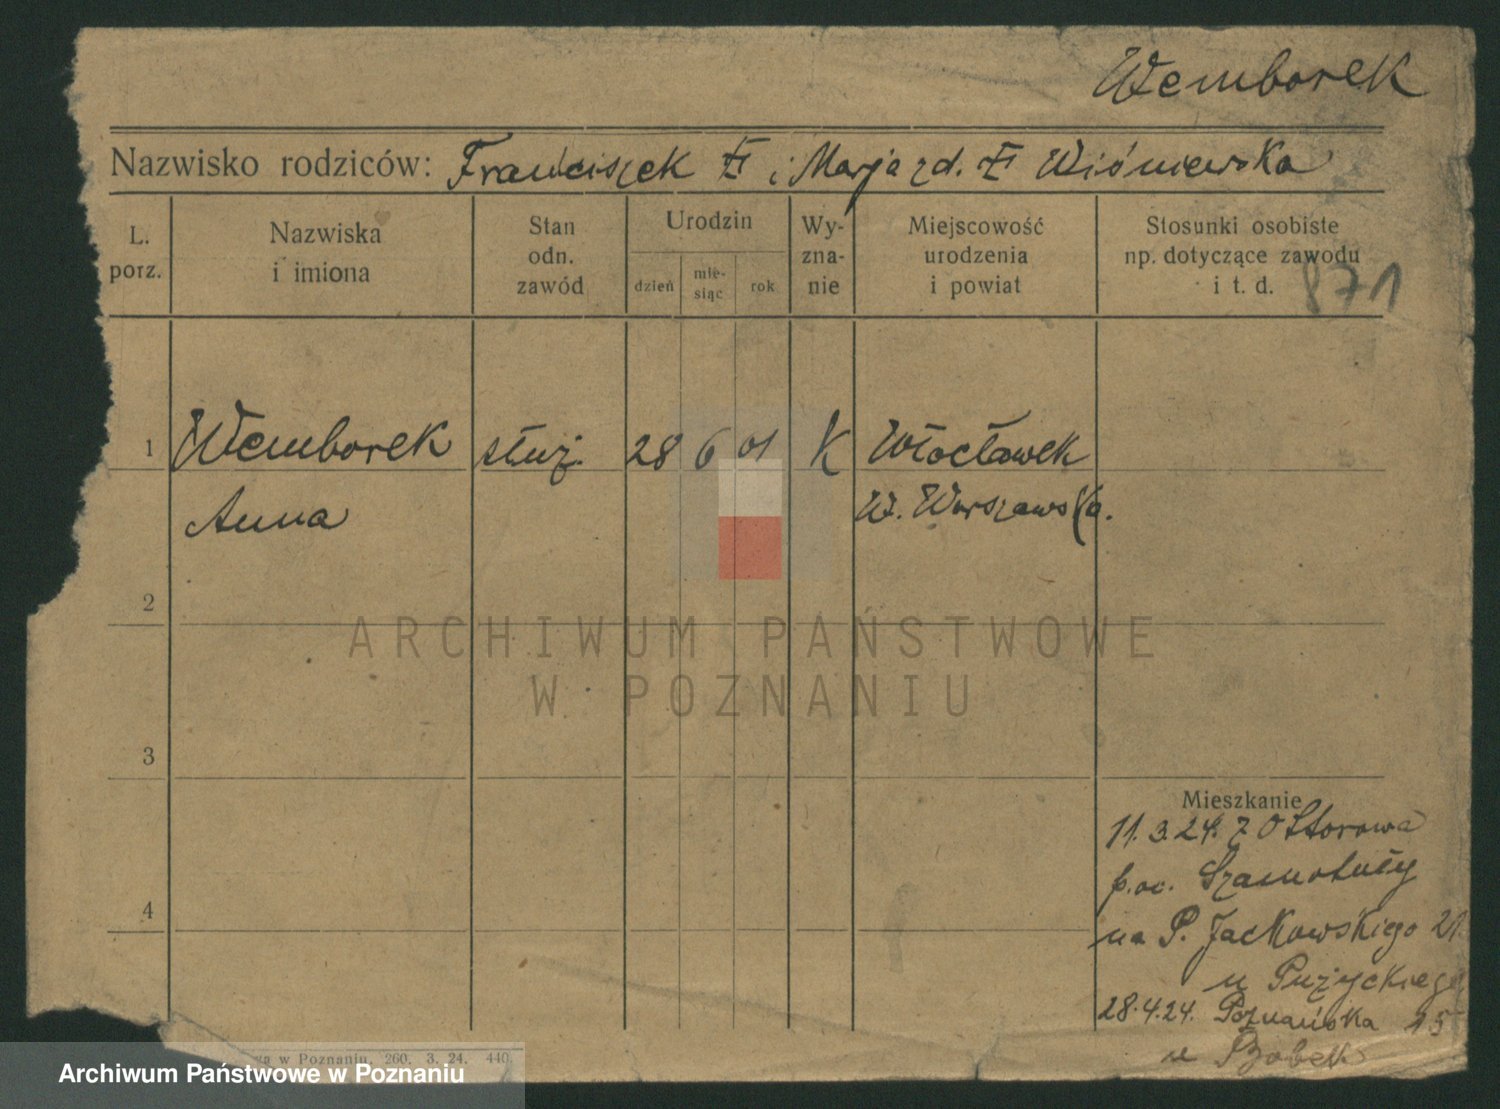 Wemborek
Nazwisko rodziców: Franciszek i Marja zd. Wiśniewska
L. porz.
Nazwiska i imiona
Stan odn. zawód
Urodzin
dzień
mie-siąc
rok
Wy-zna-nie
Miejscowość urodzenia i powiat
Stosunki osobiste np. dotyczące zawodu i t. d.
871
1 Wemborek służ. 28 6 01 K Włocławek
Anna W. Warszawska.
2
3
4
Mieszkanie
11.3.24. z Ostorowa
Szamotuły
na P. Jackowskiego 21
u Pużyckiego
28.4.24. Poznańska 15
u Bobek
w Poznaniu, 260. 3. 24. 440.
ARCHIWUM PAŃSTWOWE
W POZNANIU
Archiwum Państwowe w Poznaniu